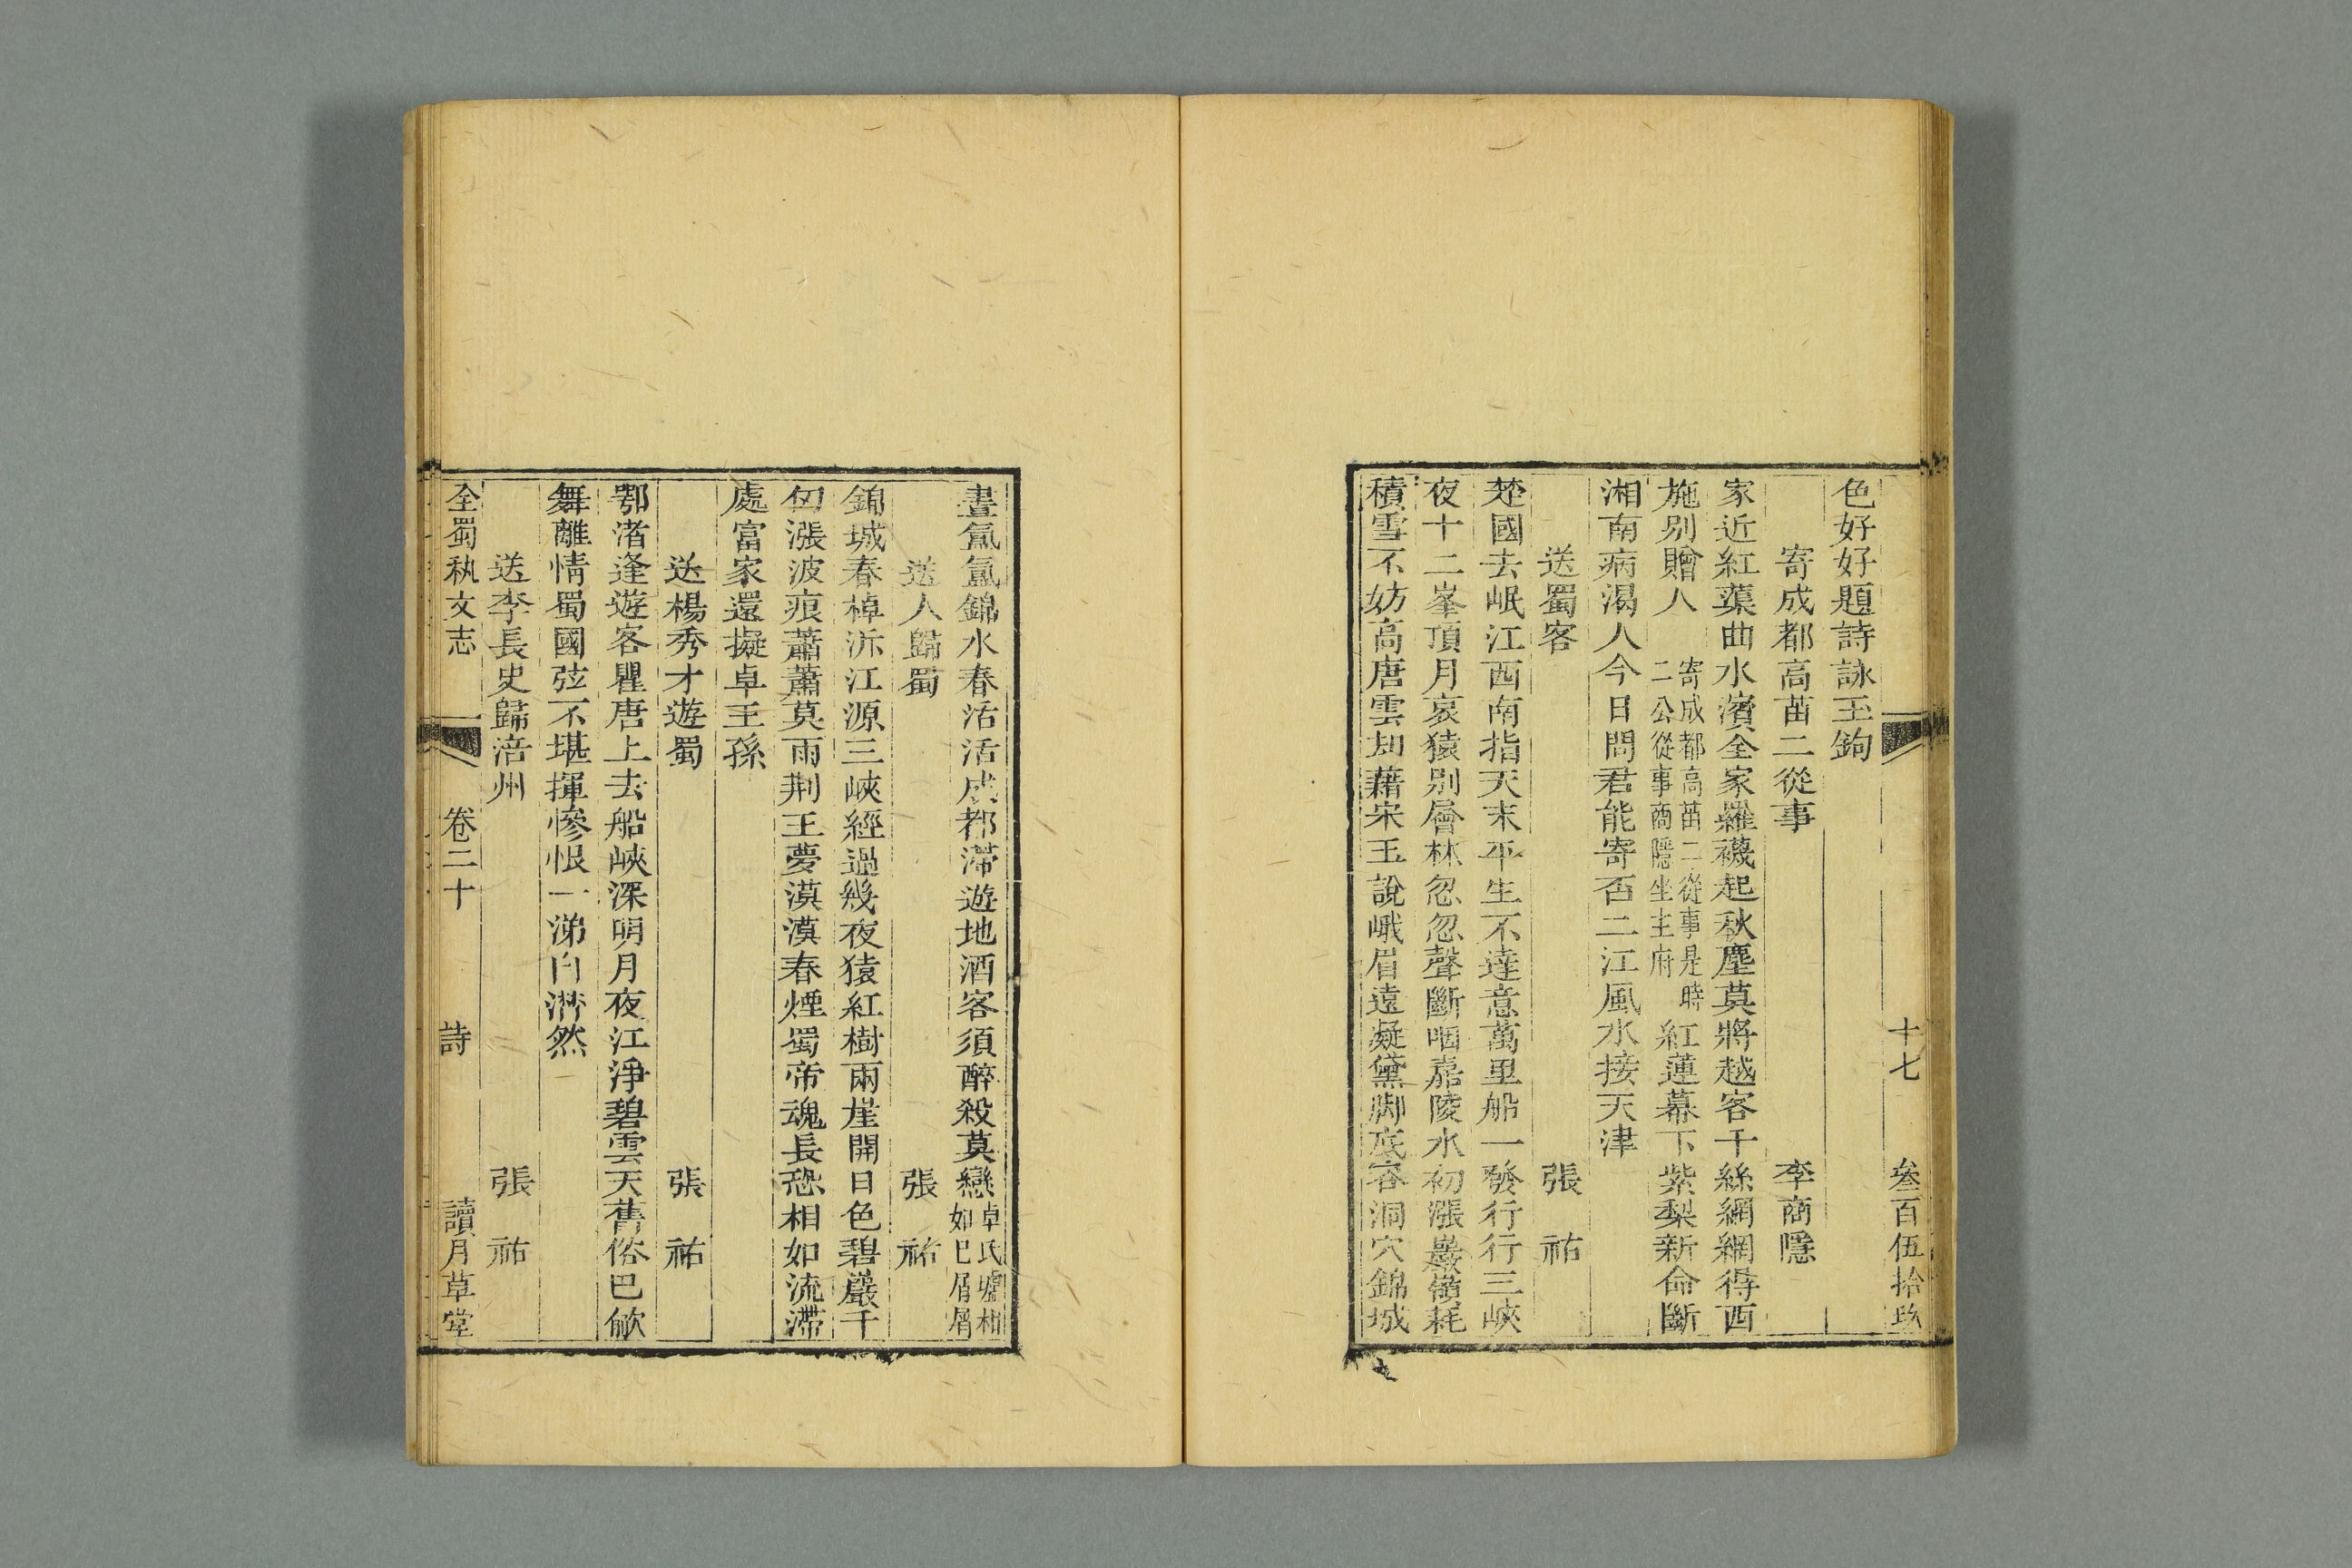 十七 叁百伍拾玖
色好好題詩詠玉鉤
寄成都高苗二從事 李商隱
家近紅蕖曲水濱全家羅襪起秋塵莫將越客千絲網網得西
施别贈人 寄成都高苗二從事是時二公從事商隱坐主府 紅蓮幕下紫梨新命斷
湘南病渴人今日問君能寄否二江風水接天津
送蜀客 張祐
楚國去岷江西南指天末平生不達意萬里船一發行行三峽
夜十二峯頂月哀猿别層林忽忽聲斷咽嘉陵水初漲巖嶺耗
積雪不妨高唐雲却藉宋玉說峨眉遠凝黛脚底容洞穴錦城
晝氳氳錦水春活活成都滯遊地酒客須醉殺莫戀卓氏壚相如已屑屑
送人歸蜀 張祐
錦城春棹泝江源三峽經過幾夜猿紅樹兩崖開日色碧巖千
仞漲波痕蕭蕭莫雨荆王夢漠漠春煙蜀帝魂長恐相如流滯
處富家還擬卓王孫
送楊秀才遊蜀 張祐
鄂渚逢遊客瞿唐上去船峽深明月夜江淨碧雲天舊俗巴歈
舞離情蜀國弦不堪揮慘恨一涕自潸然
送李長史歸涪州 張祐
全蜀秇文志 卷二十 詩 讀月草堂